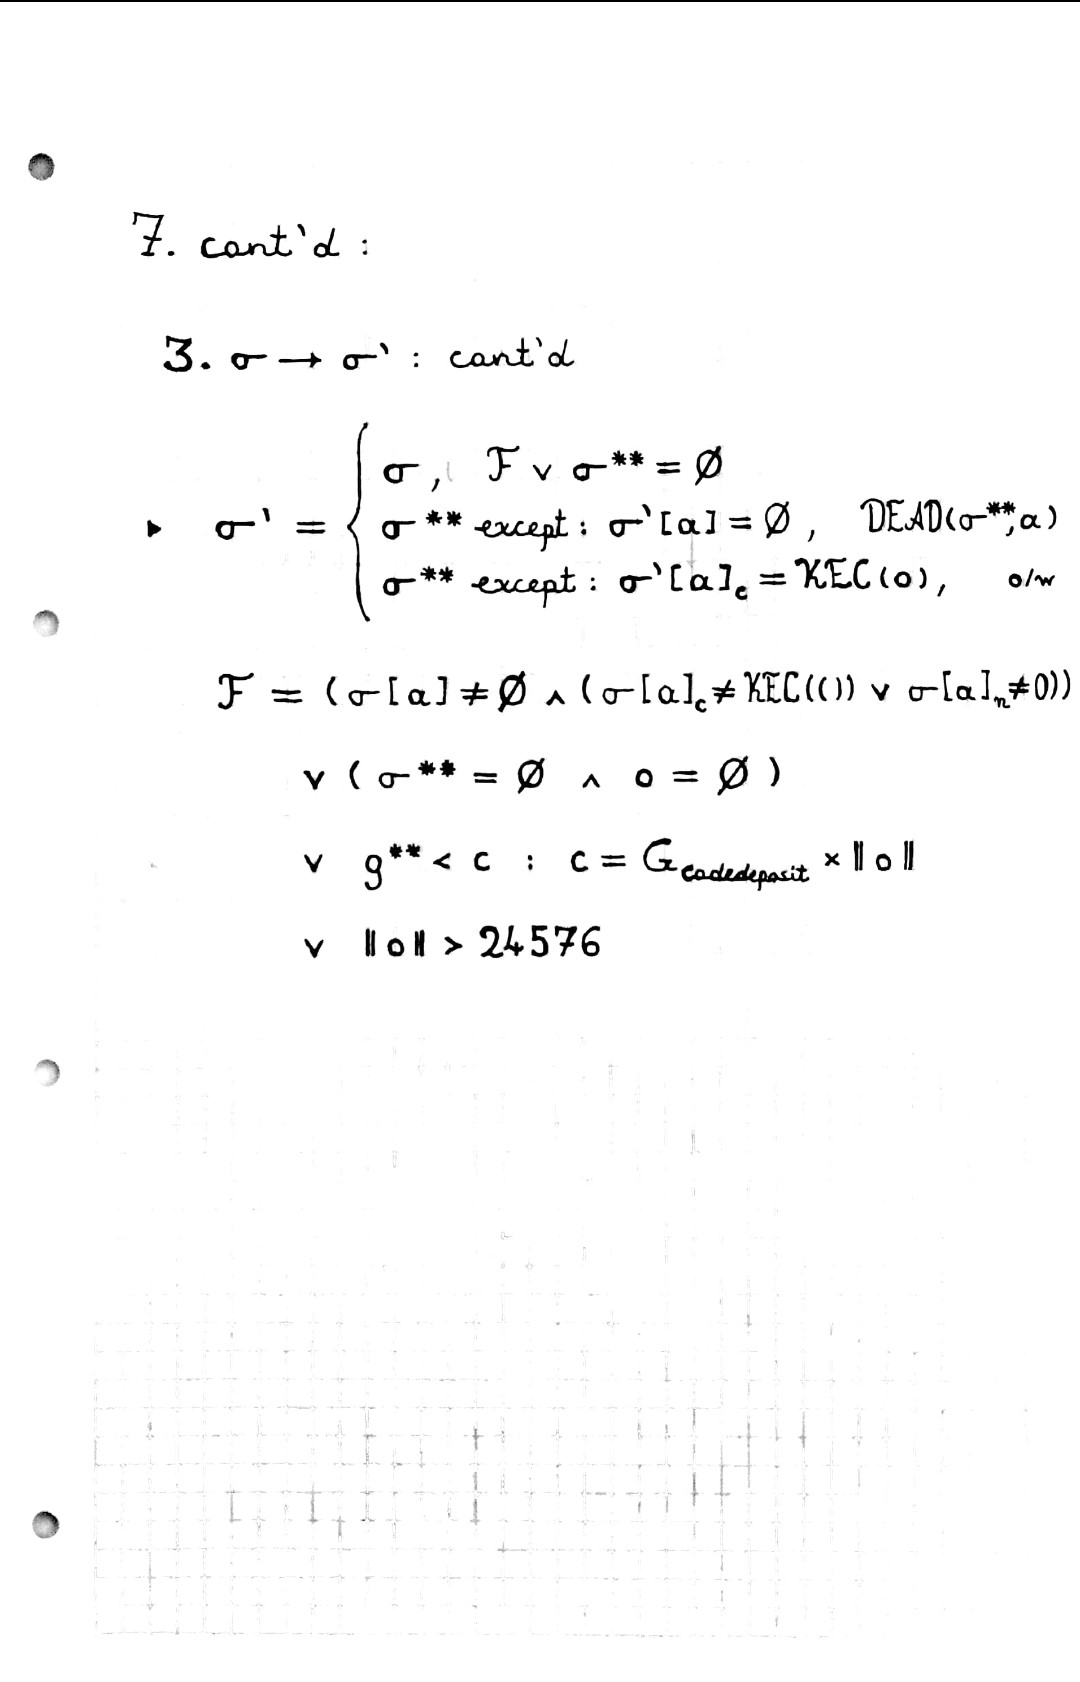 7. cont'd :
3. σ → σ` : cont'd
σ, F ∨ σ** = Ø
▸ σ` = { σ** except : σ`[a] = Ø , DEAD(σ**, a)
σ** except : σ`[a]c = KEC(o), o/w
F = (σ[a] ≠ Ø ∧ (σ[a]c ≠ KEC(()) ∨ σ[a]n ≠ 0))
∨ ( σ** = Ø ∧ o = Ø )
∨ g** < c : c = Gcodedeposit × ‖o‖
∨ ‖o‖ > 24576